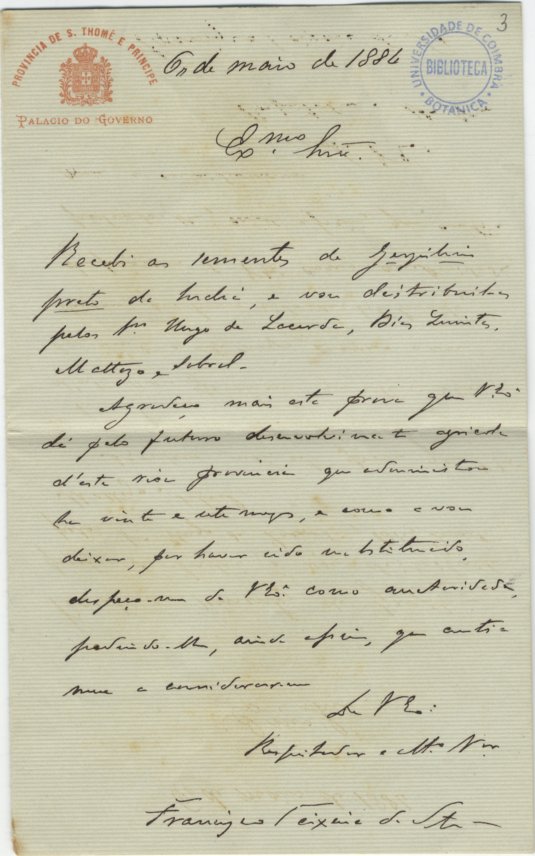 PROVINCIA DE S. THOMÉ E PRINCIPE
PALACIO DO GOVERNO
UNIVERSIDADE DE COIMBRA
BIBLIOTECA
BOTANICA
3
6 de maio de 1886
Ex.mo Snr.
Recebi as sementes de Gergelim
preto da India, e vou destribuil-as
pelos Srs Hugo de Lacerda, Dias Quintas,
Mattozo, e Sobral.
Agradeço mais esta prova que V.Exª
dá pelo futuro desenvolvimento agricola
d'esta rica provincia que administrou
ha vinte e sete mezes, e como a vou
deixar, por haver sido substituido,
despeço-me de V.Exª como auctoridade,
pedindo-lhe, ainda assim, que conti-
nue a considerar-me
De V.Exª
Respeitador e Mto Vor
Francisco Teixeira da Silva